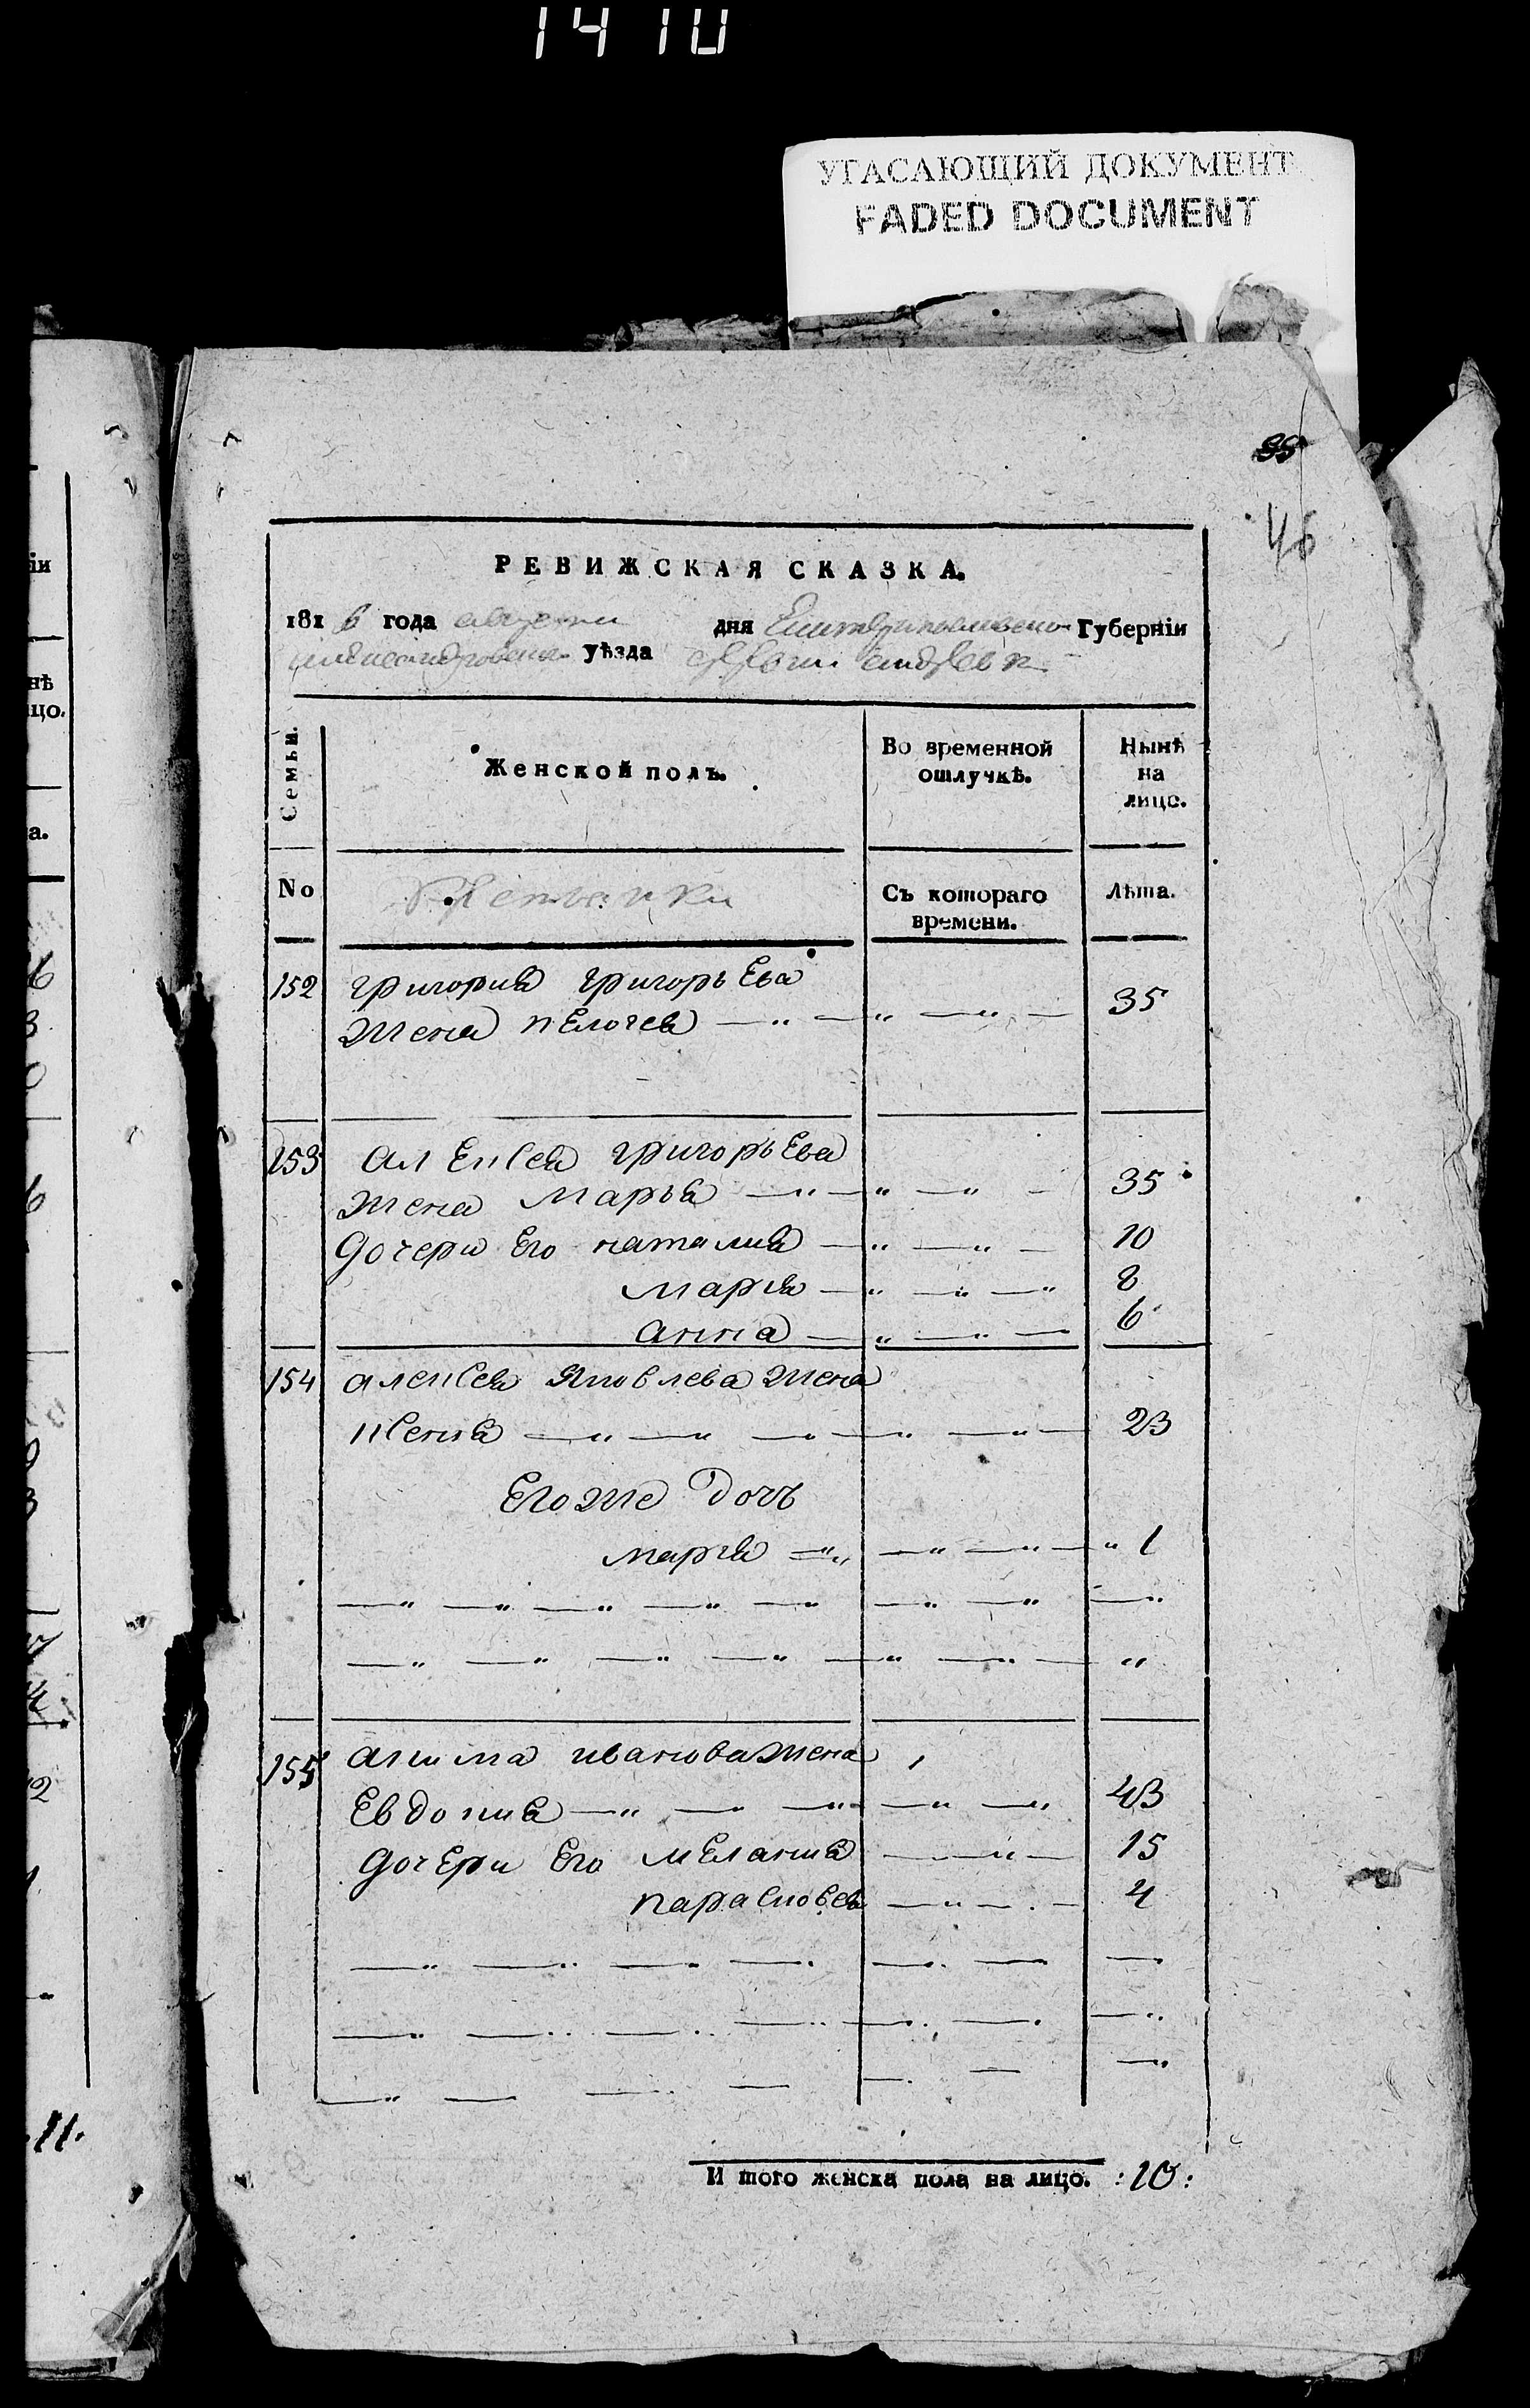 1410
УГАСАЮЩИЙ ДОКУМЕНТ
FADED DOCUMENT
85
46
РЕВИЖСКАЯ СКАЗКА.
1816 года августа дня Екатеринославской Губернїи
уѣзда
Семьи.
Женской полъ.
Во временной отлучкѣ.
Нынѣ на лицо.
No
Съ котораго времени.
Лѣта.
152 григория григорьева
жена пелогея 35
153 алексея григорьева
жена марья 35
дочери его наталия 10
мария 8
анна 6
154 алексея яковлева жена
ксения 23
его же дочь
мария 1
155 акима иванова жена
евдокия 43
дочери его мелания 15
парасковея 4
И того женска пола на лицо. :10:
11.